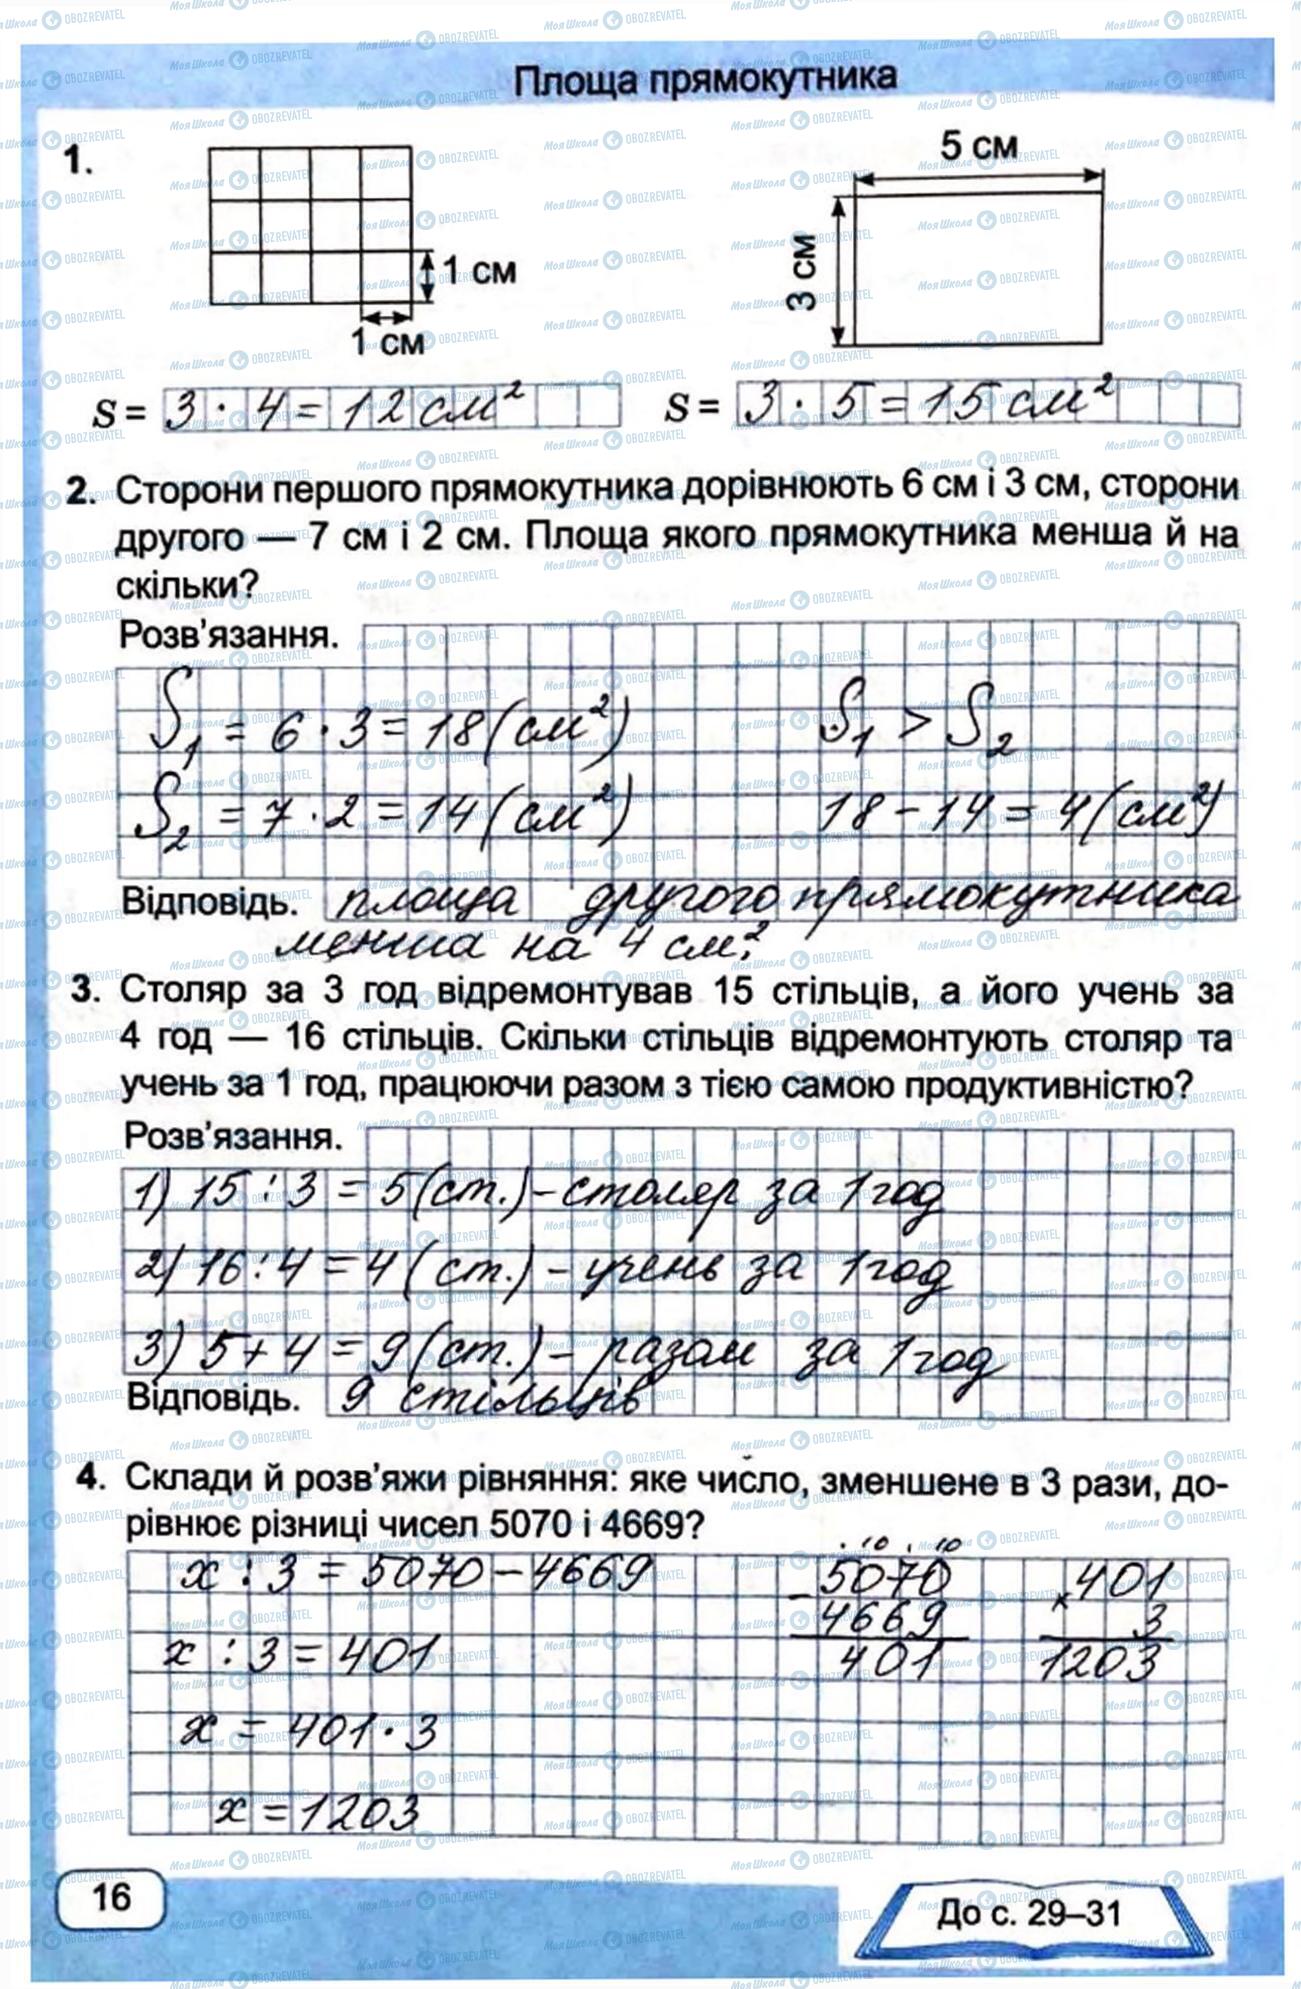 Площа прямокутника
1.
5 см
3 см
1 см
1 см
S = 3 · 4 = 12 см²
S = 3 · 5 = 15 см²
2. Сторони першого прямокутника дорівнюють 6 см і 3 см, сторони
другого — 7 см і 2 см. Площа якого прямокутника менша й на
скільки?
Розв'язання.
S₁ = 6 · 3 = 18 (см²) S₁ > S₂
S₂ = 7 · 2 = 14 (см²) 18 - 14 = 4 (см²)
Відповідь. площа другого прямокутника
менша на 4 см².
3. Столяр за 3 год відремонтував 15 стільців, а його учень за
4 год — 16 стільців. Скільки стільців відремонтують столяр та
учень за 1 год, працюючи разом з тією самою продуктивністю?
Розв'язання.
1) 15 : 3 = 5 (ст.) - столяр за 1 год
2) 16 : 4 = 4 (ст.) - учень за 1 год
3) 5 + 4 = 9 (ст.) - разом за 1 год
Відповідь. 9 стільців
4. Склади й розв'яжи рівняння: яке число, зменшене в 3 рази, до-
рівнює різниці чисел 5070 і 4669?
. 10 . 10
x : 3 = 5070 - 4669 - 5070 × 401
4669 3
x : 3 = 401 401 1203
x = 401 · 3
x = 1203
16
До с. 29–31
МояШкола OBOZREVATEL